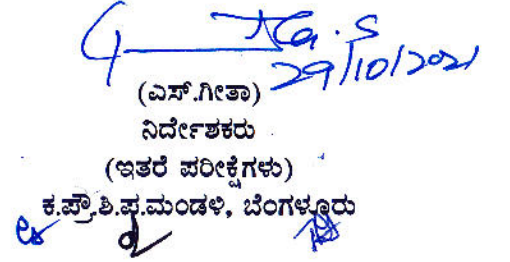 29/10/2021
(ಎಸ್.ಗೀತಾ)
ನಿರ್ದೇಶಕರು
(ಇತರೆ ಪರೀಕ್ಷೆಗಳು)
ಕ.ಪ್ರೌ.ಶಿ.ಪ.ಮಂಡಳಿ, ಬೆಂಗಳೂರು